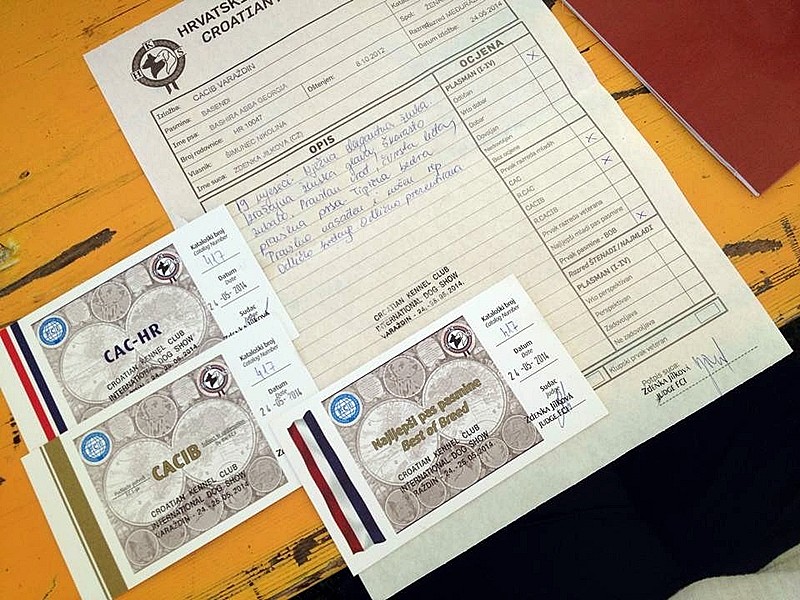 HRVATSKI
CROATIAN
HKS
Kata
Spol: ŽEN
Razred: MEĐURAZ
Datum izložbe: 24.05.2014
Izložba: CACIB VARAŽDIN
Pasmina: BASENDI
Ime psa: BASHIRA ABBA GEORGIA
Oštenjen: 8.10.2012
Broj rodovnice: HR 10047
Vlasnik: ŠIMUNEC NIKOLINA
Ime suca: ZDENKA JILKOVA (CZ)
OPIS
19 mjeseci. Nježna elegantna ženka.
zubalo. Pravilan vrat.
pravilna prsa. Tipična bedra
Pravilno nasađen i nošen rep
Odlično kretanje Odlično prezentirana
OCJENA
PLASMAN (I-IV)
Odličan
Vrlo dobar
Dobar
Dovoljan
Nedovoljan
Bez ocjene
Prvak razreda mladih
CAC
R.CAC
CACIB
R.CACIB
Prvak razreda veterana
Najljepši mladi pas pasmine
Prvak pasmine - BOB
Razred ŠTENAD / NAJMLAĐI
PLASMAN (I-IV)
Vrlo perspektivan
Perspektivan
Zadovoljava
Ne zadovoljava
Klupski prvak veteran
CROATIAN KENNEL CLUB
INTERNATIONAL DOG SHOW
VARAŽDIN - 24., 25.05.2014.
Potpis suca:
Zdenka Jílková
JUDGE FCI
Kataloški broj
Catalog Number
417
Datum
Date
24-05-2014
Sudac
Judge
FCI
CAC-HR
CROATIAN KENNEL CLUB
INTERNATIONAL DOG SHOW
VARAŽDIN - 24.
Kataloški broj
Catalog Number
417
Datum
Date
24-05-2014
Sudac
Judge
Zdenka
JUDGE
FCI
CACIB
CROATIAN KENNEL CLUB
INTERNATIONAL DOG SHOW
VARAŽDIN - 24., 25.05.2014.
Kataloški broj
Catalog Number
417
Datum
Date
24-05-2014
Sudac
Judge
Zdenka Jílková
JUDGE FCI
FCI
Najljepši pas pasmine
Best of Breed
CROATIAN KENNEL CLUB
INTERNATIONAL DOG SHOW
RAŽDIN - 24., 25.05.2014.